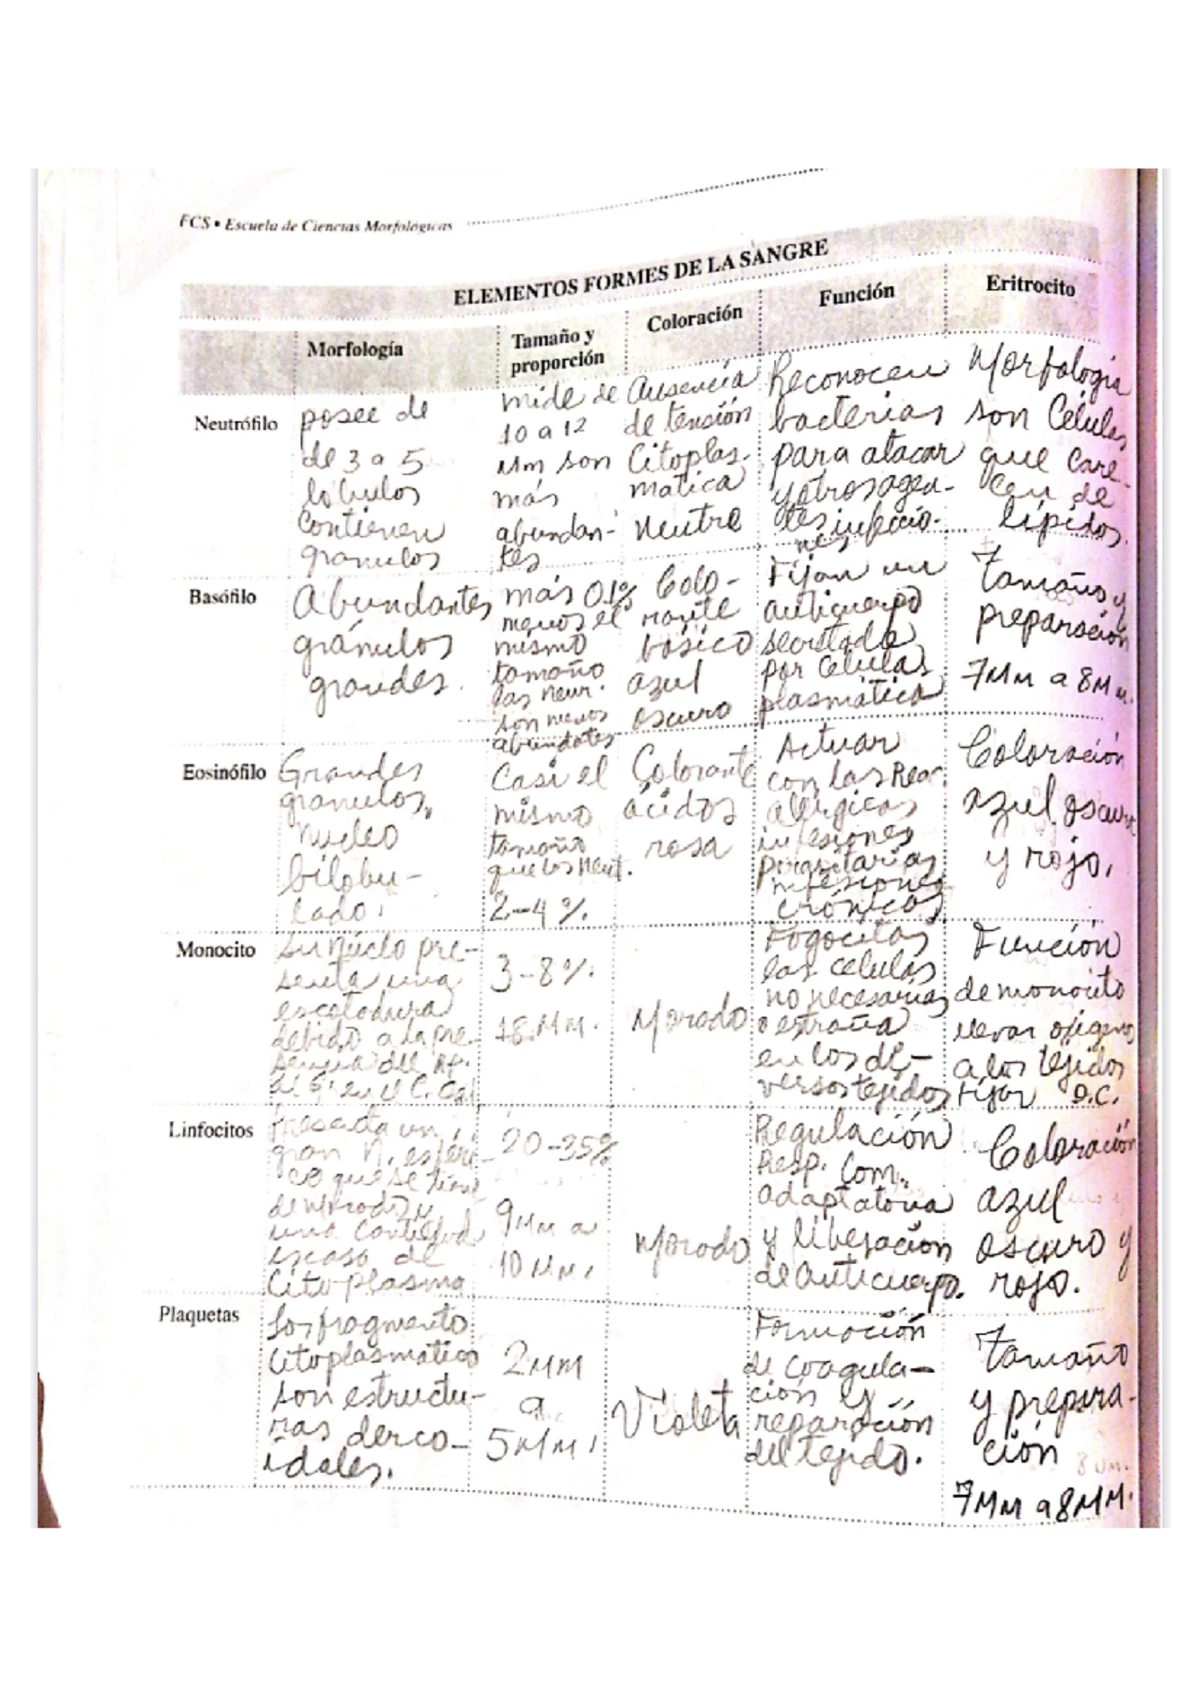 FCS • Escuela de Ciencias Morfológicas
ELEMENTOS FORMES DE LA SANGRE
Morfología
Tamaño y
proporción
Coloración
Función
Eritrocito
Neutrófilo
posee de
de 3 a 5
lóbulos
contienen
granulos
mide de
10 a 12
Mm son
más
abundan-
tes
Ausencia
de tensión
Citoplas-
matica
neutro
Reconocen
bacterias
para atacar
y otros agen-
tes infeccio-
nes
Morfologia
son Células
que care-
cen de
lípidos.
Basófilo
Abundantes
gránulos
grandes.
más 0.1%
menos el
mismo
tamaño
las neur.
son menos
abundates
Colo-
rante
básico
azul
oscuro
Fijan un
anticuerpo
secretada
por Celulas
plasmática
Tamaño y
preparación
7Mm a 8Mm.
Eosinófilo
Grandes
granulos,
nucleo
bilobu-
lado.
Casi el
mismo
tamaño
que los neut.
2-4%.
Colorante
ácidos
rosa
Actuar
con las Reac.
alérgicas
infesiones
infesiones
crónicas
Coloración
azul oscuro
y rojo.
Monocito
Su núclo pre-
senta una
escotadura
debido a la pre-
sencia del
3-8%.
18 MM.
Morado
Fogocitas
las celulas
no necesarias
o extraña
en los di-
versos tejidos
Función
de monocito
llevar oxigeno
a los tejidos
Fijar D.C.
Linfocitos
Presenta un
gran N. esféri-
co que se tiene
de morado y
una cantidad
escaso de
Citoplasma
20-35%
9Mm a
10 Mm.
Morado
Regulación
Resp. Com.
adaptatoria
y liberación
de anticuerpo.
Coloración
azul
oscuro y
rojo.
Plaquetas
Son fragmento
Citoplasmático
son estructu-
ras disco-
idales.
2MM
a
5MM.
Violeta
Formación
de coagula-
ción y
reparación
del tejido.
Tamaño
y prepara-
ción
7Mm a 8MM.